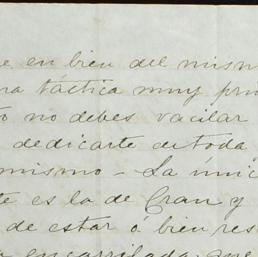 e en bien del mism
ra táctica muy pru
to no debes vacilar
dedicarte en toda
mismo - La únic
te es la de Gran y
de estar ó bien res
a encarrilada que